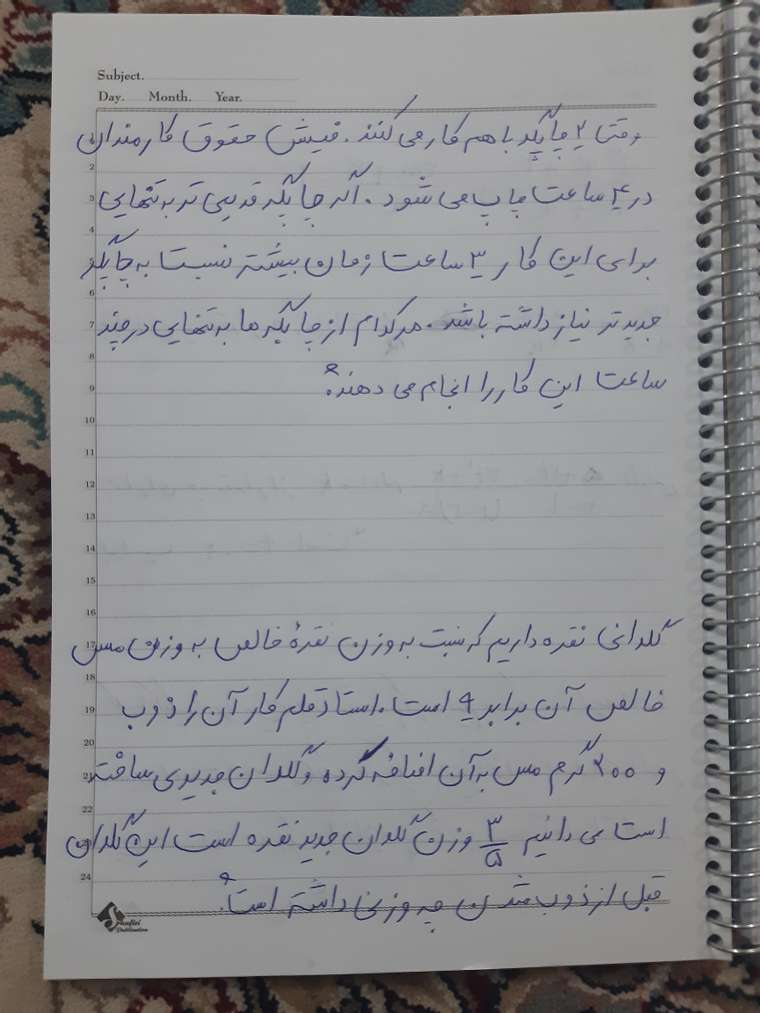 Subject.
Day. Month. Year.
وقتی ۲ چاپگر با هم کار می کنند. فیش حقوق کارمندان
در ۲ ساعت چاپ می شود. اگر چاپگر قدیمی تر به تنهایی
برای این کار ۳ ساعت زمان بیشتر نسبت به چاپگر
جدیدتر نیاز داشته باشد. هر کدام از چاپگر ها به تنهایی در چند
ساعت این کار را انجام می دهند؟
گلدانی نقره داریم که نسبت به وزن نقرهٔ خالص به وزن مس
خالص آن برابر ۹ است. استاد قلم کار آن را ذوب
و ۳۰۰ گرم مس به آن اضافه کرده و گلدان جدیدی ساخته
است می دانیم ۳/۵ وزن گلدان جدید نقره است این گلدان
قبل از ذوب شدن چه وزنی داشته است؟
2
3
4
5
6
7
8
9
10
11
12
13
14
15
16
17
18
19
20
21
22
23
24